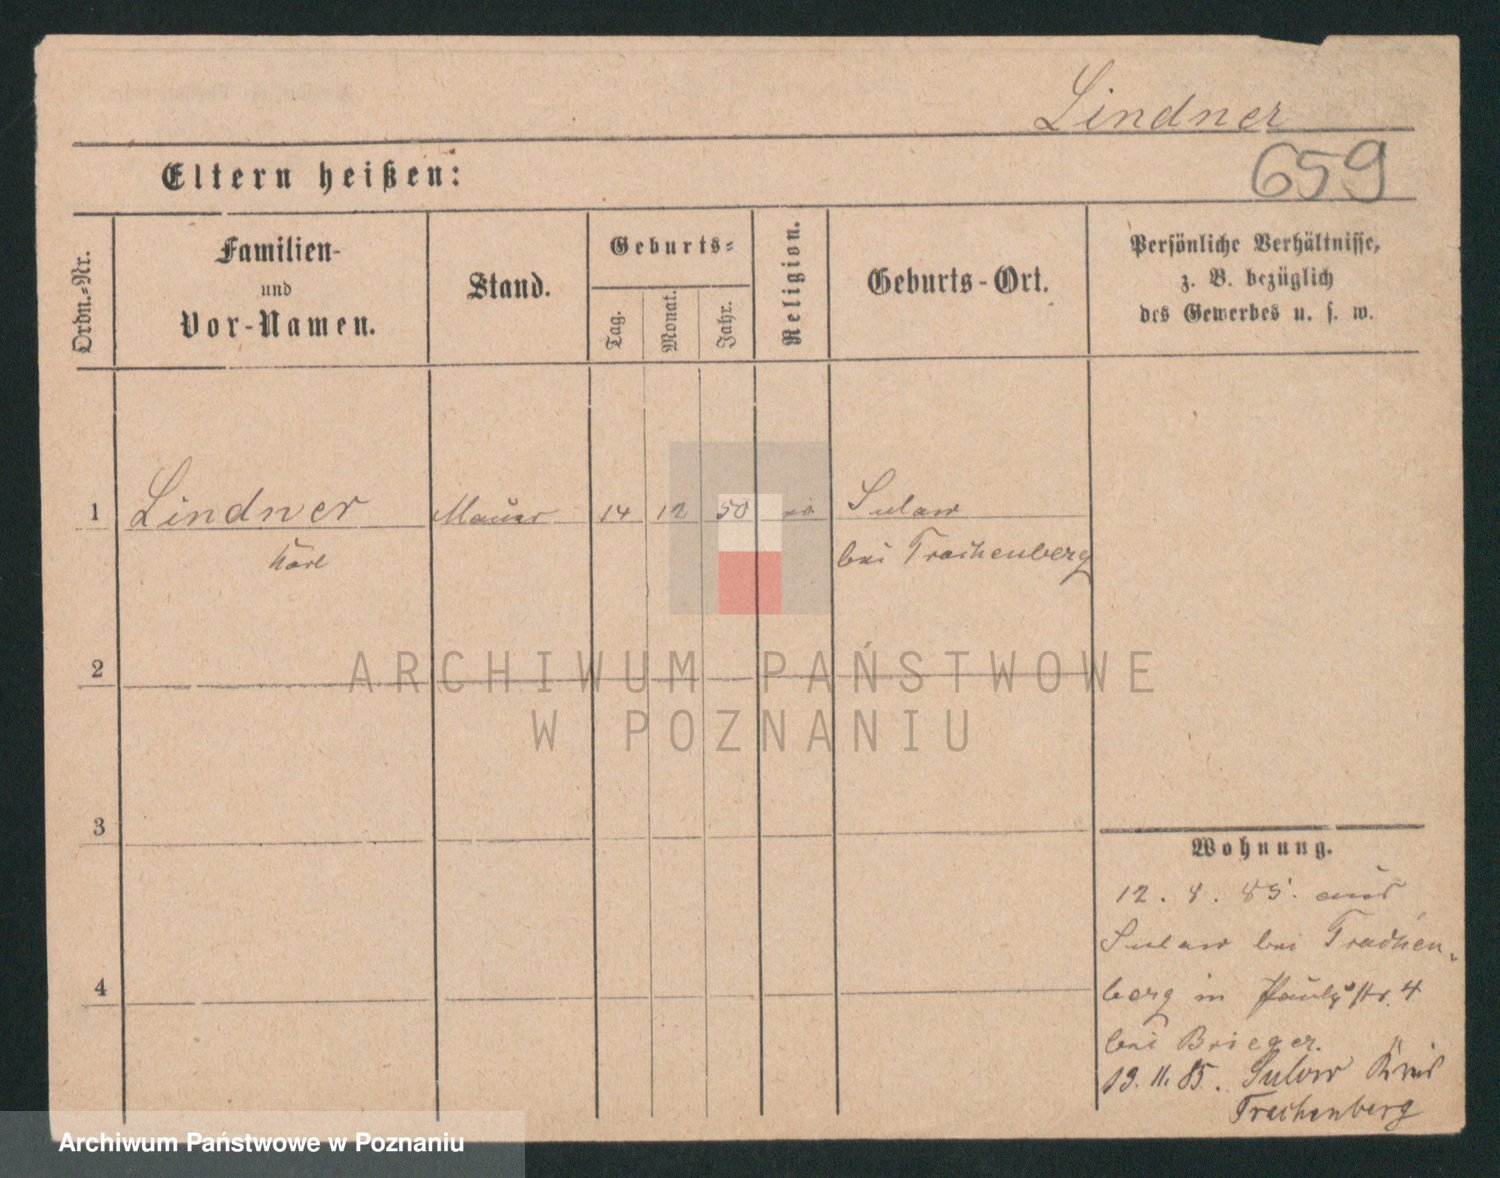 Lindner
659
Eltern heißen:
Ordn.=Nr.
Familien-
und
Vor-Namen.
Stand.
Geburts=
Tag.
Monat.
Jahr.
Religion.
Geburts-Ort.
Persönliche Verhältnisse,
z. B. bezüglich
des Gewerbes u. s. w.
1 Lindner Maurer 14 12 50 Sulau
Karl bei Trachenberg
2
3
4
Wohnung.
12. 8. 85. aus
Sulau bei Trachen-
berg in Paulistr. 4
bei Brieger.
19. 11. 85. Sulau Kreis
Trachenberg
ARCHIWUM PAŃSTWOWE
W POZNANIU
Archiwum Państwowe w Poznaniu